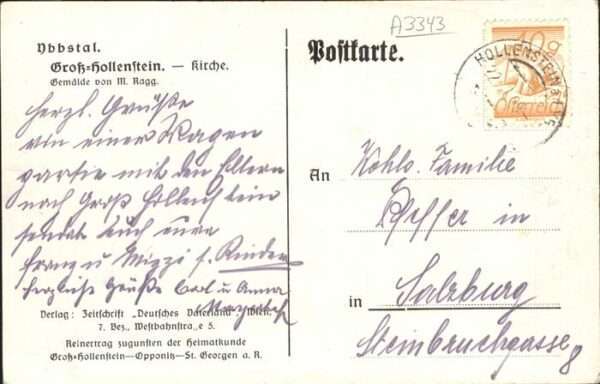 A3343
Ybbstal.
Groß-Hollenstein. — Kirche.
Gemälde von M. Ragg.
Postkarte.
10 g
Österreich
HOLLENSTEIN
herzl. Grüße
von einer Wagen
partie mit den Eltern
nach Groß Hollenstein
sendet Euch eure
Franz u Mizzi s. Kinder
herzliche Grüße Carl u Anna
An
Wohlg. Familie
Pfeffer in
in Salzburg
Steinbruchgasse 8
Verlag: Zeitschrift „Deutsches Vaterland", Wien.
7. Bez., Westbahnstraße 5.
Reinertrag zugunsten der Heimatkunde
Groß-Hollenstein—Opponitz—St. Georgen a. R.